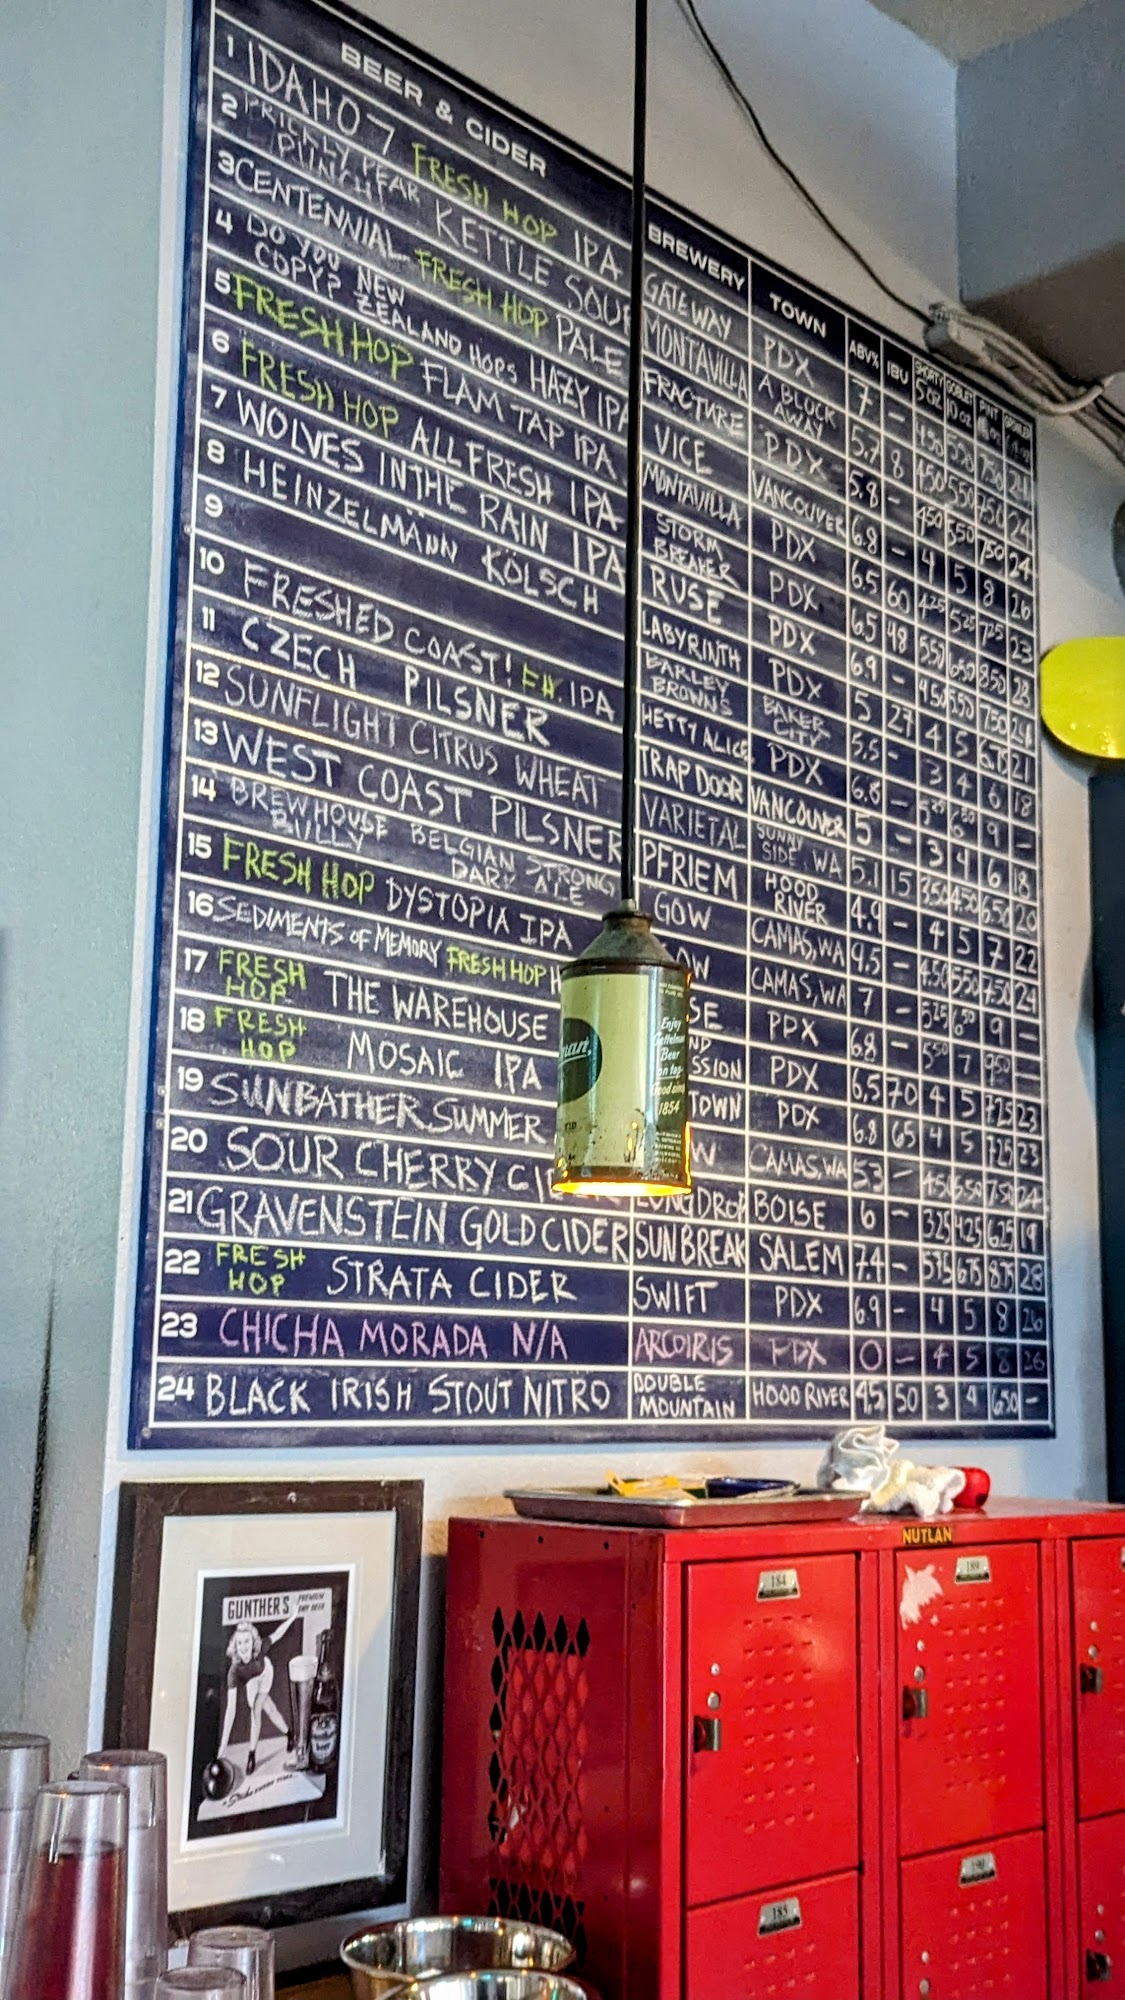 BEER & CIDER BREWERY TOWN ABV% IBU SHORTY 5 oz GOBLET 10 oz PINT 16 oz
1 IDAHO 7 FRESH HOP IPA GATEWAY PDX 7 – 450 550 750 24
2 PRICKLY PEAR PUNCH! KETTLE SOUR MONTAVILLA A BLOCK AWAY 5.7 8 450 550 750 24
3 CENTENNIAL FRESH HOP PALE FRACTURE PDX 5.8 – 450 550 750 24
4 DO YOU COPY? NEW ZEALAND HOPS HAZY IPA VICE VANCOUVER 6.8 – 4 5 8 26
5 FRESH HOP FLAM TAP IPA MONTAVILLA PDX 6.5 60 425 525 725 23
6 FRESH HOP ALL FRESH IPA STORM BREAKER PDX 6.5 48 550 650 850 28
7 WOLVES IN THE RAIN IPA RUSE PDX 6.9 – 450 550 750 24
8 HEINZELMÄNN KÖLSCH LABYRINTH PDX 5 27 4 5 6.75 21
9 BARLEY BROWNS BAKER CITY 5.5 – 3 4 6 18
10 FRESHED COAST! F.H. IPA HETTY ALICE PDX 6.8 – 525 650 9 –
11 CZECH PILSNER TRAP DOOR VANCOUVER 5 – 3 4 6 18
12 SUNFLIGHT CITRUS WHEAT VARIETAL SUNNY SIDE, WA 5.1 15 350 450 650 20
13 WEST COAST PILSNER PFRIEM HOOD RIVER 4.9 – 4 5 7 22
14 BREWHOUSE BULLY BELGIAN STRONG DARK ALE GOW CAMAS, WA 9.5 – 450 550 750 24
15 FRESH HOP DYSTOPIA IPA OW CAMAS, WA 7 – 525 650 9 –
16 SEDIMENTS OF MEMORY FRESH HOP H SE PDX 6.8 – 550 7 950 –
17 FRESH HOP THE WAREHOUSE ND SSION PDX 6.5 70 4 5 725 23
18 FRESH HOP MOSAIC IPA TOWN PDX 6.8 65 4 5 725 23
19 SUNBATHER SUMMER W CAMAS, WA 5.3 – 450 550 750 24
20 SOUR CHERRY CIDER LONG DROP BOISE 6 – 325 425 625 19
21 GRAVENSTEIN GOLD CIDER SUNBREAK SALEM 7.4 – 575 675 875 28
22 FRESH HOP STRATA CIDER SWIFT PDX 6.9 – 4 5 8 26
23 CHICHA MORADA N/A ARCOIRIS PDX 0 – 4 5 8 26
24 BLACK IRISH STOUT NITRO DOUBLE MOUNTAIN HOOD RIVER 4.5 50 3 4 650 –
Enjoy
Gettelman
Beer
on tap
Good since
1854
NUTLAN
184
189
GUNTHER'S PREMIUM DRY BEER
185
190